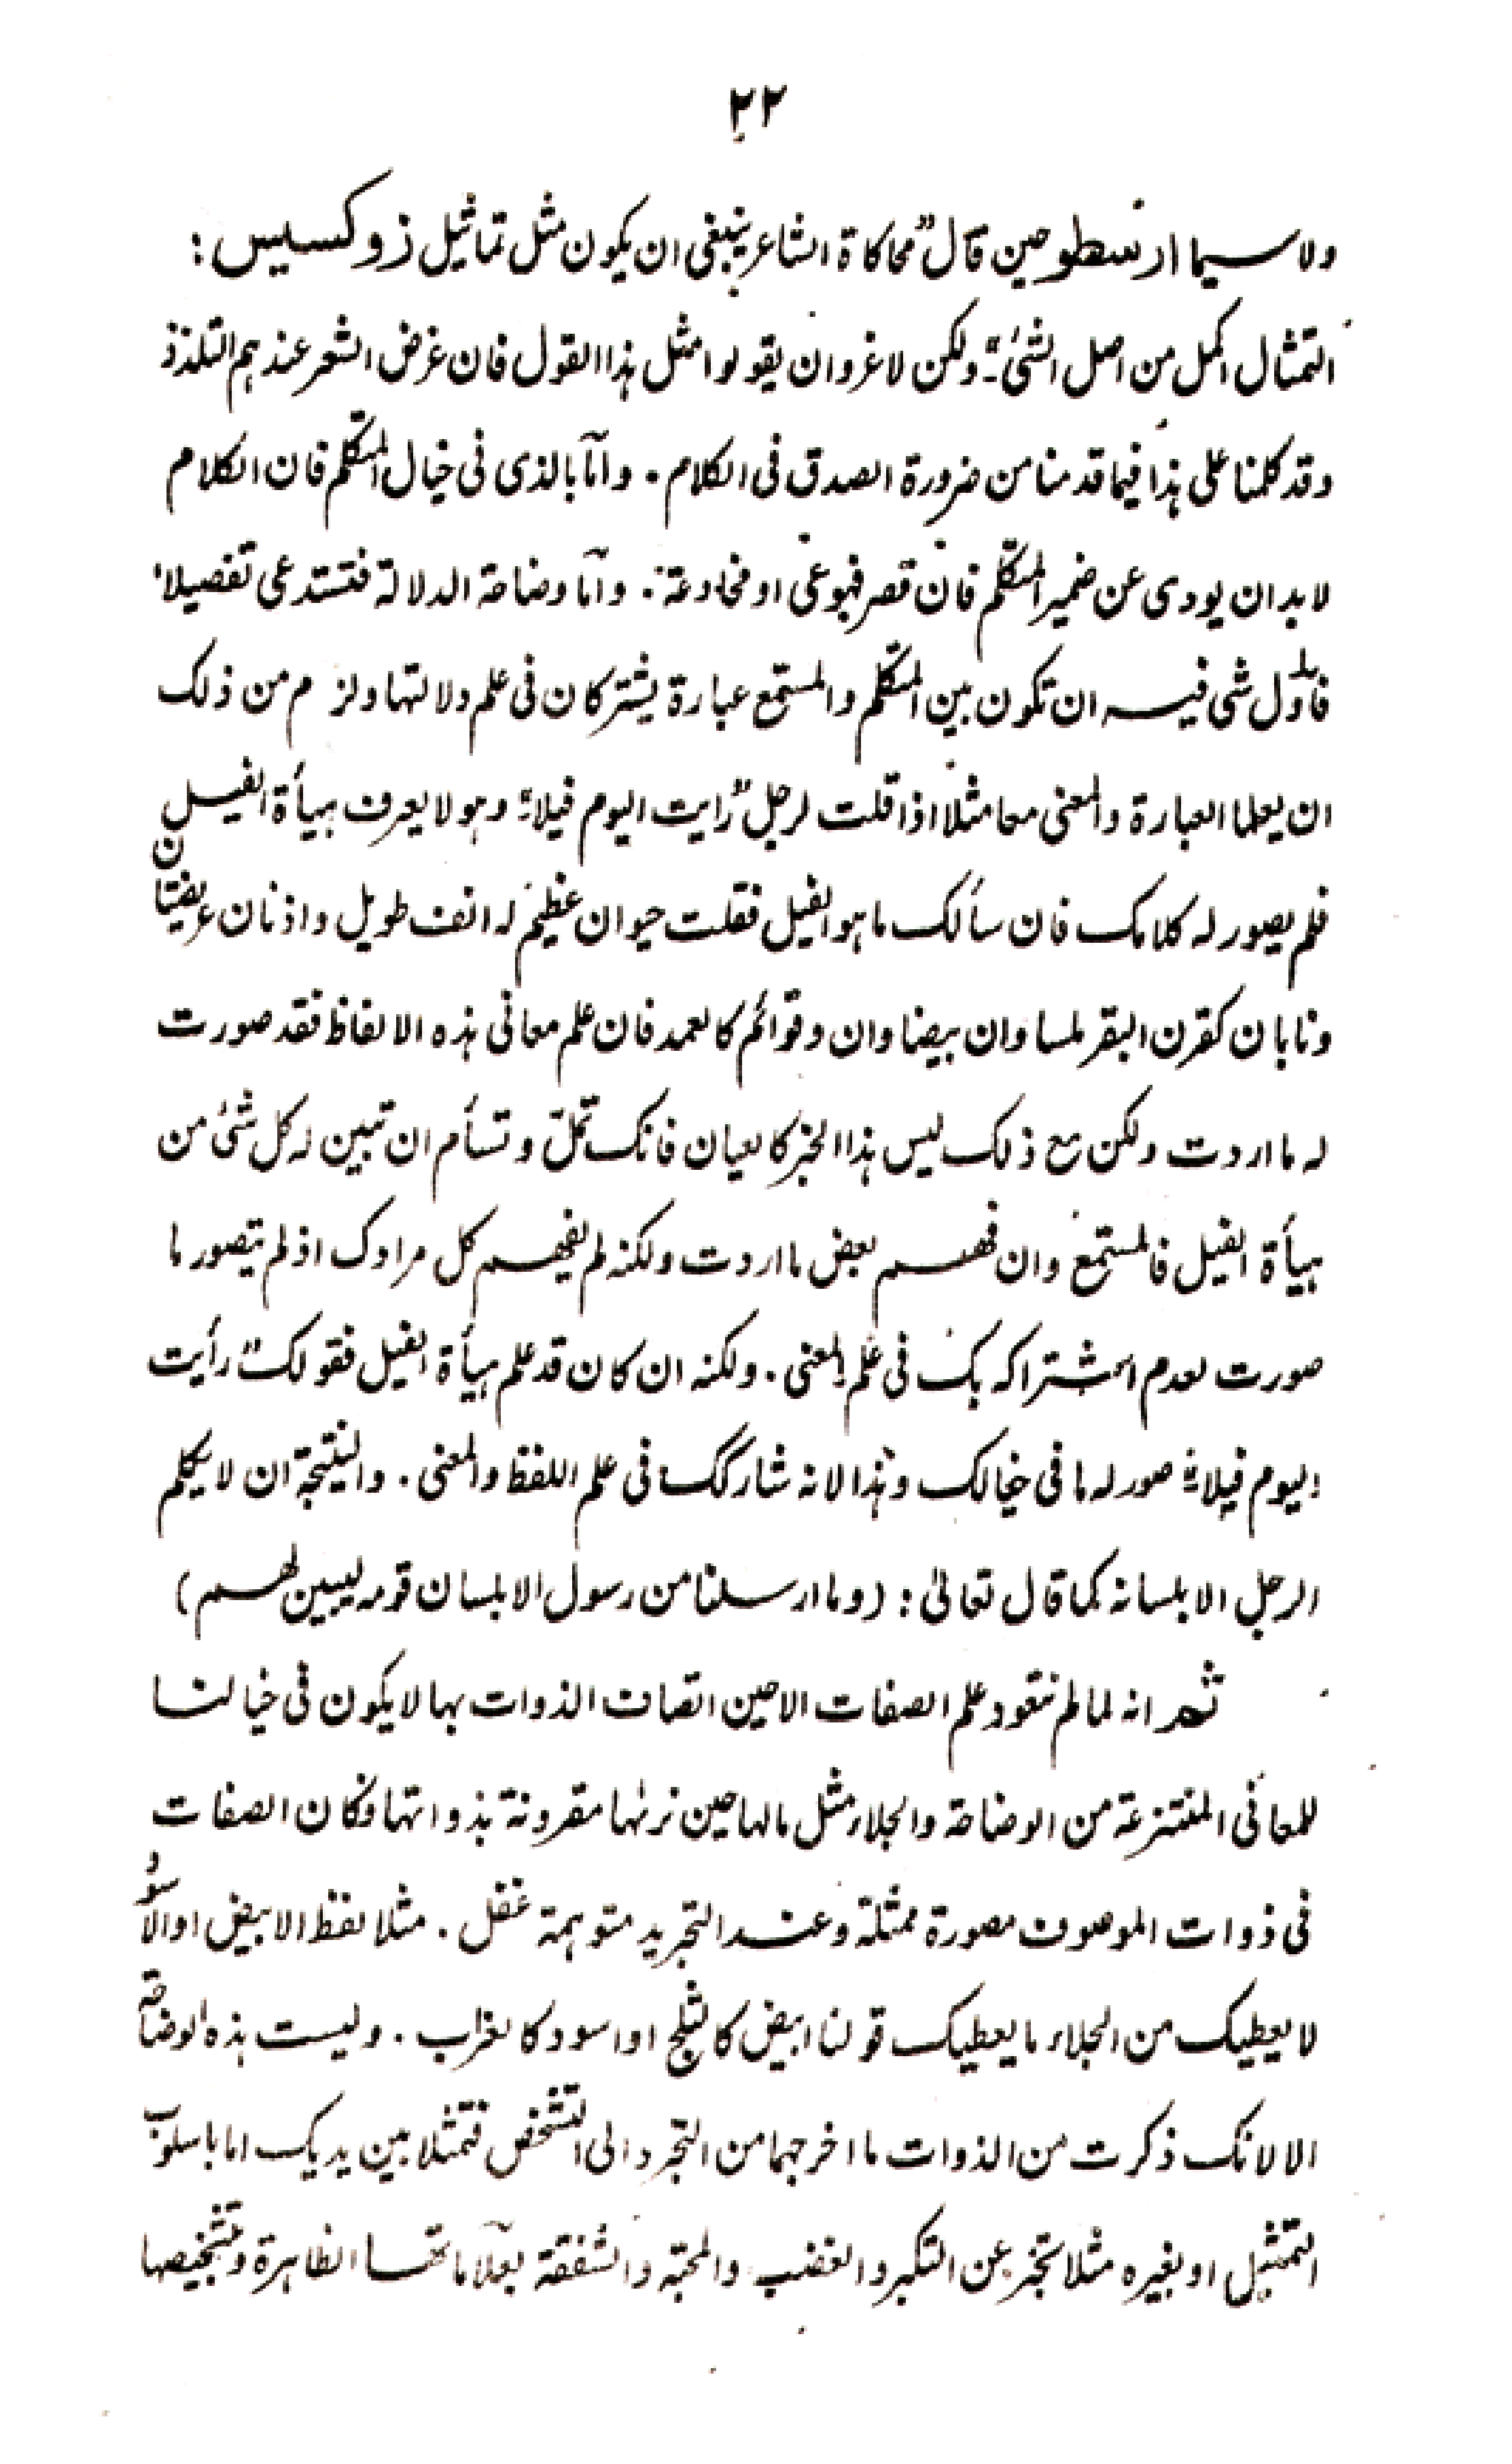 ٢٢
ولا سيما ارسطو حين قال "محاكاة الشاعر ينبغى ان يكون مثل تماثيل زوكسيس:
التمثال اكمل من اصل الشئ"۔ ولكن لا غرو ان يقولوا مثل هذا القول فان غرض الشعر عندهم التلذذ
وقد كلمنا على هذا فيما قدمنا من ضرورة الصدق فى الكلام. وامّا بالذى فى خيال المتكلم فان الكلام
لابد ان يودى عن ضمير المتكلم فان قصر فهو عى او مخادعة. وامّا وضاحة الدلالة فتستدعى تفصيلا
فاول شى فيه ان تكون بين المتكلم والمستمع عبارة يشتركان فى علم دلالتها ولزم من ذلك
ان يعلما العبارة والمعنى معا مثلا اذا قلت لرجل "رايت اليوم فيلا" وهو لا يعرف هيأة الفيل
فلم يصور له كلامك فان سألك ما هو الفيل فقلت حيوان عظيم له انف طويل واذنان عريضتان
ونابان كقرن البقر ملساوان بيضاوان وقوائم كالعمد فان علم معانى هذه الالفاظ فقد صورت
له ما اردت ولكن مع ذلك ليس هذا الخبر كالعيان فانك تملّ وتسأم ان تبين له كل شئ من
هيأة الفيل فالمستمع وان فهم بعض ما اردت ولكنه لم يفهم كل مرادك اذ لم يتصور ما
صورت لعدم اشتراكه بك فى علم المعنى. ولكنه ان كان قد علم هيأة الفيل فقولك "رأيت
اليوم فيلا" صور له ما فى خيالك وهذا لانه شاركك فى علم اللفظ والمعنى. والنتيجة ان لا يكلم
الرجل الا بلسانه كما قال تعالىٰ: (وما ارسلنا من رسول الا بلسان قومه ليبين لهم)
ثم انه لما لم نتعود علم الصفات الا حين اتصاف الذوات بها لا يكون فى خيالنا
للمعانى المنتزعة من الوضاحة والجلاء مثل ما لها حين نرٰها مقرونة بذواتها فكان الصفات
فى ذوات الموصوف مصورة ممثلة وعند التجريد متوهمة غفل. مثلا لفظ الابيض او الاسود
لا يعطيك من الجلاء ما يعطيك قولنا ابيض كالثلج او اسود كالغراب. وليست هذه الوضاحة
الا لانك ذكرت من الذوات ما اخرجها من التجرد الى التشخص فتمثلا بين يديك اما باسلوب
التمثيل او بغيره مثلا تخبر عن التكبر والغضب والمحبة والشفقة بعلاماتها الظاهرة وتشخيصها